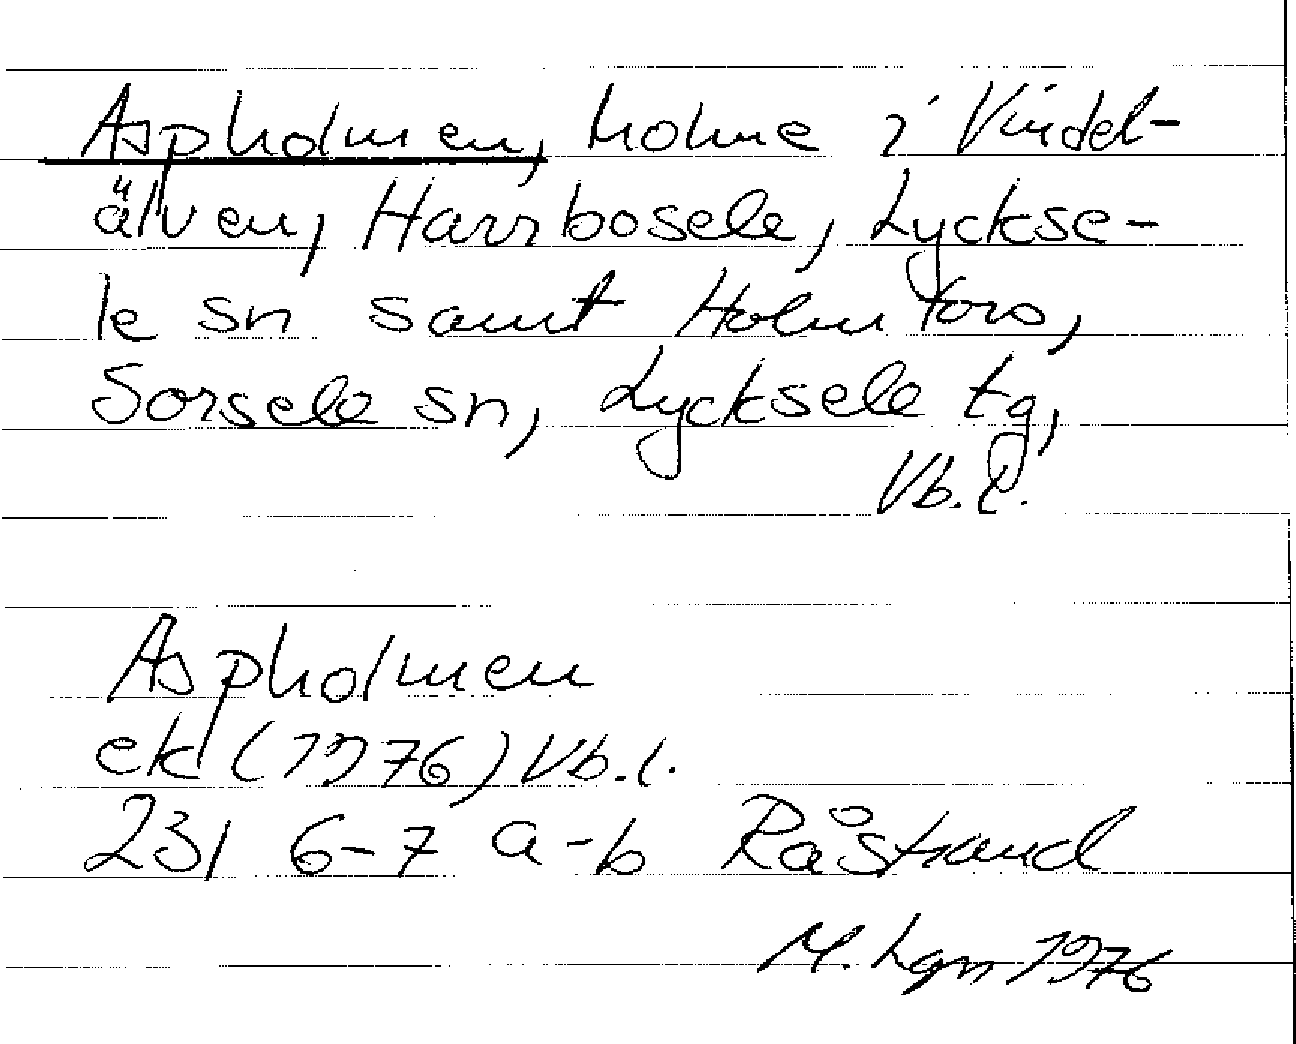 Aspholmen, holme i Vindel-
älven, Harrbosele, Lycksе-
le sn samt Holmfors,
Sorsele sn, Lycksele tg,
Vb. l.
Aspholmen
ek (1976) Vb. l.
23I 6-7 a-b Råstrand
M. Lgn 1976